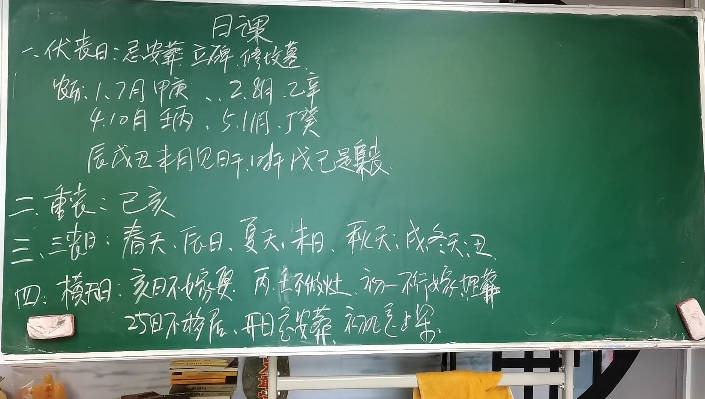 日课
一、伏丧日:忌安葬 立碑、修坟墓
农历、1、7月甲庚、、2、8月、乙辛
4、10月 壬丙、5、11月、丁癸
辰戌丑未月见日干、时干戊己是丧
二、重丧:己亥
三、三丧日:春天、辰日、夏天、未日、秋天:戌、冬天:丑
四、横天日:亥日不嫁娶 丙、壬不作灶、初一不行嫁、埋葬
25日不移居、开日忌安葬、初九忌上梁